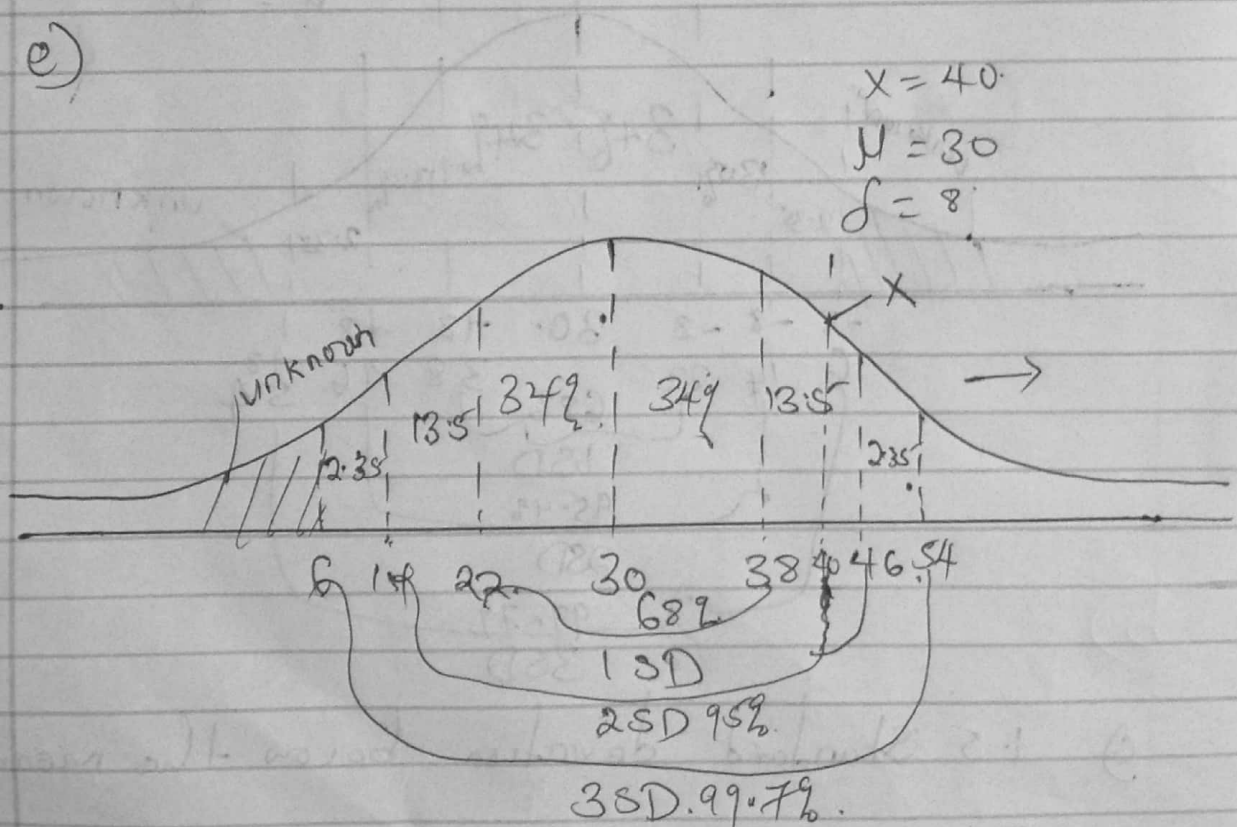 e)
X = 40.
μ = 30
δ = 8
X
unknown
2.35 13.5 34% 34% 13.5 2.35
6 14 22 30 38 40 46 54
68%
1SD
2SD 95%
3SD. 99.7%.